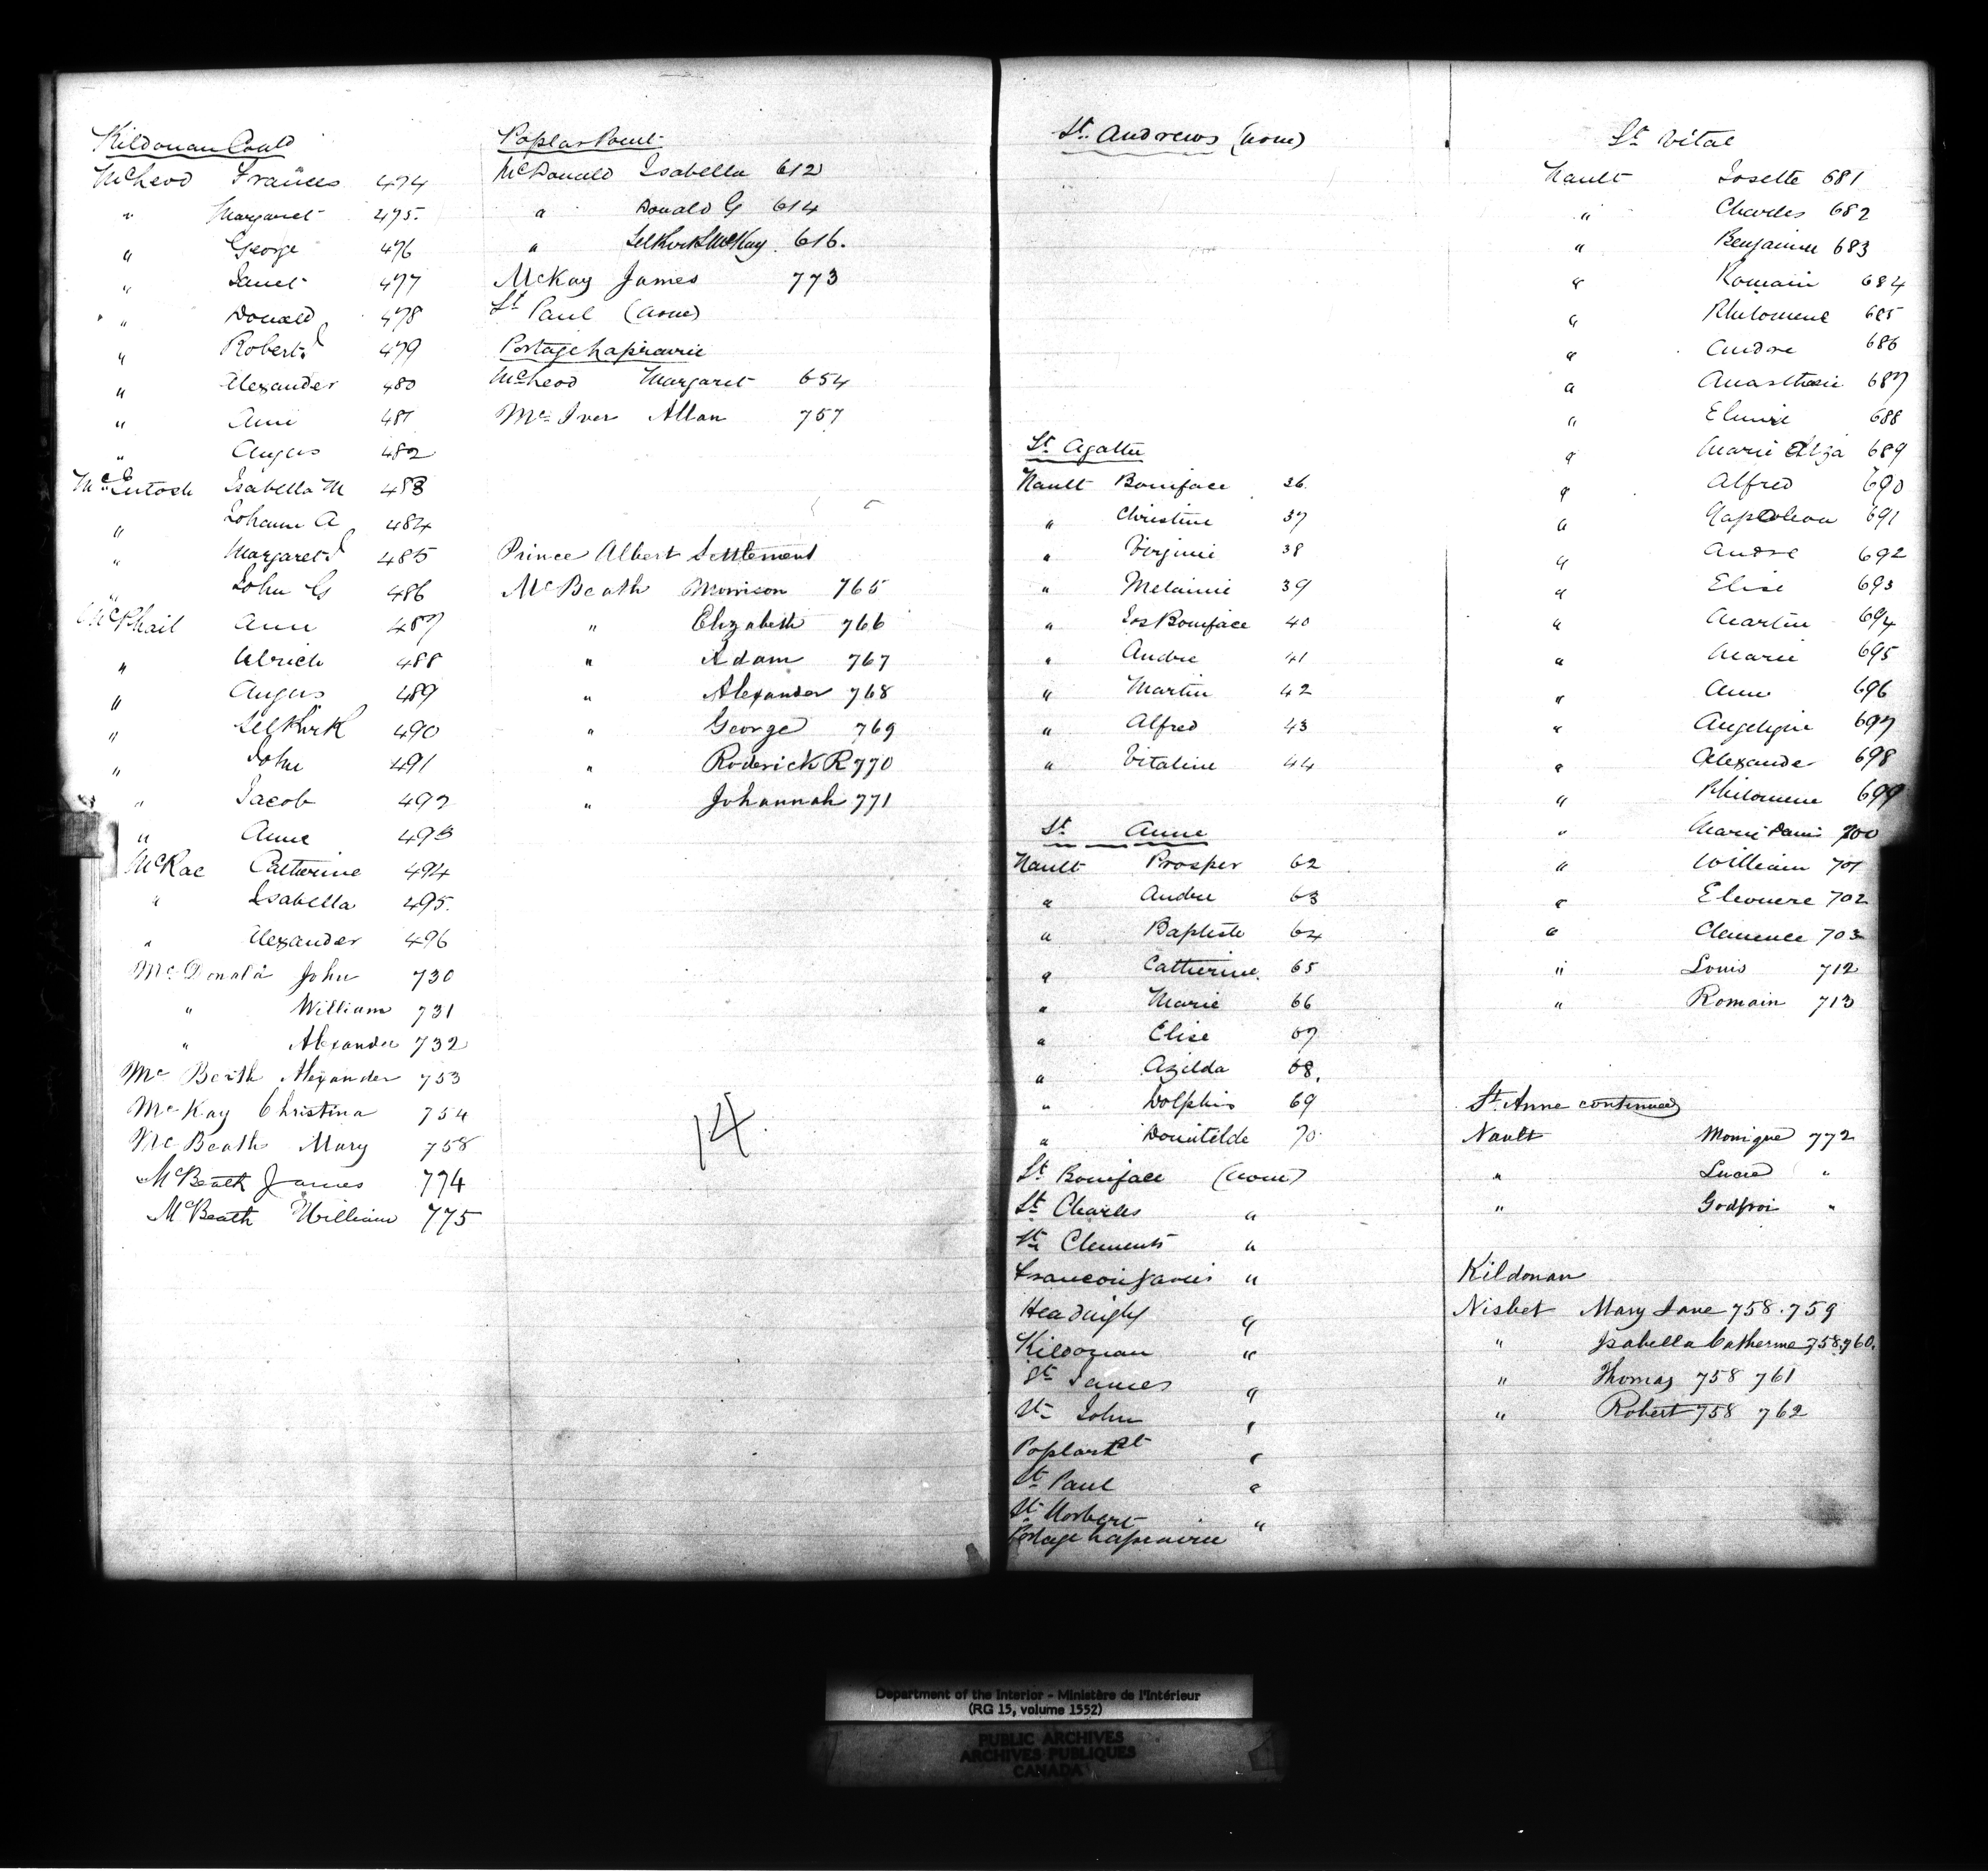 Kildonan Contd
McLeod Frances 474
" Margaret 475.
" George 476
" Janet 477
" Donald 478
" Robert 479
" Alexander 480
" Ann 481
" Angus 482
McIntosh Isabella M 483
" Johann A 484
" Margaret 485
" John G 486
McPhail Ann 487
" Ulrich 488
" Angus 489
" Selkirk 490
" John 491
" Jacob 492
" Anne 493
McRae Catherine 494
" Isabella 495.
" Alexander 496
McDonald John 730
" William 731
" Alexander 732
McBeath Alexander 753
McKay Christina 754
McBeath Mary 758
McBeath James 774
McBeath William 775
Poplar Point
McDonald Isabella 612
" Donald G 614
" Selkirk McKay 616.
McKay James 773
St Paul (none)
Portage Laprairie
McLeod Margaret 654
McIver Allan 757
Prince Albert Settlement
McBeath Morrison 765
" Elizabeth 766
" Adam 767
" Alexander 768
" George 769
" Roderick R 770
" Johannah 771
14
St. Andrews (none)
St. Agathe
Nault Boniface 36
" Christine 37
" Virginie 38
" Melainie 39
" Jos Boniface 40
" Andre 41
" Martin 42
" Alfred 43
" Vitaline 44
St Anne
Nault Prosper 62
" Andre 63
" Baptiste 64
" Catherine 65
" Marie 66
" Elise 67
" Azilda 68.
" Dolphis 69
" Domitilde 70
St Boniface (none)
St Charles "
St Clements "
Francois Xavier "
Headingly "
Kildonan "
St James "
St John "
Poplar Pt "
St Paul "
St Norbert "
Portage Laprairie
St Vital
Nault Josette 681
" Charles 682
" Benjamin 683
" Romain 684
" Philomene 685
" Andre 686
" Anasthasie 687
" Elmire 688
" Marie Eliza 689
" Alfred 690
" Napoleon 691
" Andre 692
" Elise 693
" Martin 694
" Marie 695
" Anne 696
" Angelique 697
" Alexandre 698
" Philomene 699
" Marie 700
" William 701
" Eleonere 702
" Clemence 703
" Louis 712
" Romain 713
St. Anne continued
Nault Monique 772
" "
" Godfroi "
Kildonan
Nisbet Mary Jane 758.759
" Isabella Catherine 758.760.
" Thomas 758 761
" Robert 758 762
Department of the Interior - Ministère de l'Intérieur
(RG 15, volume 1552)
PUBLIC ARCHIVES
ARCHIVES PUBLIQUES
CANADA